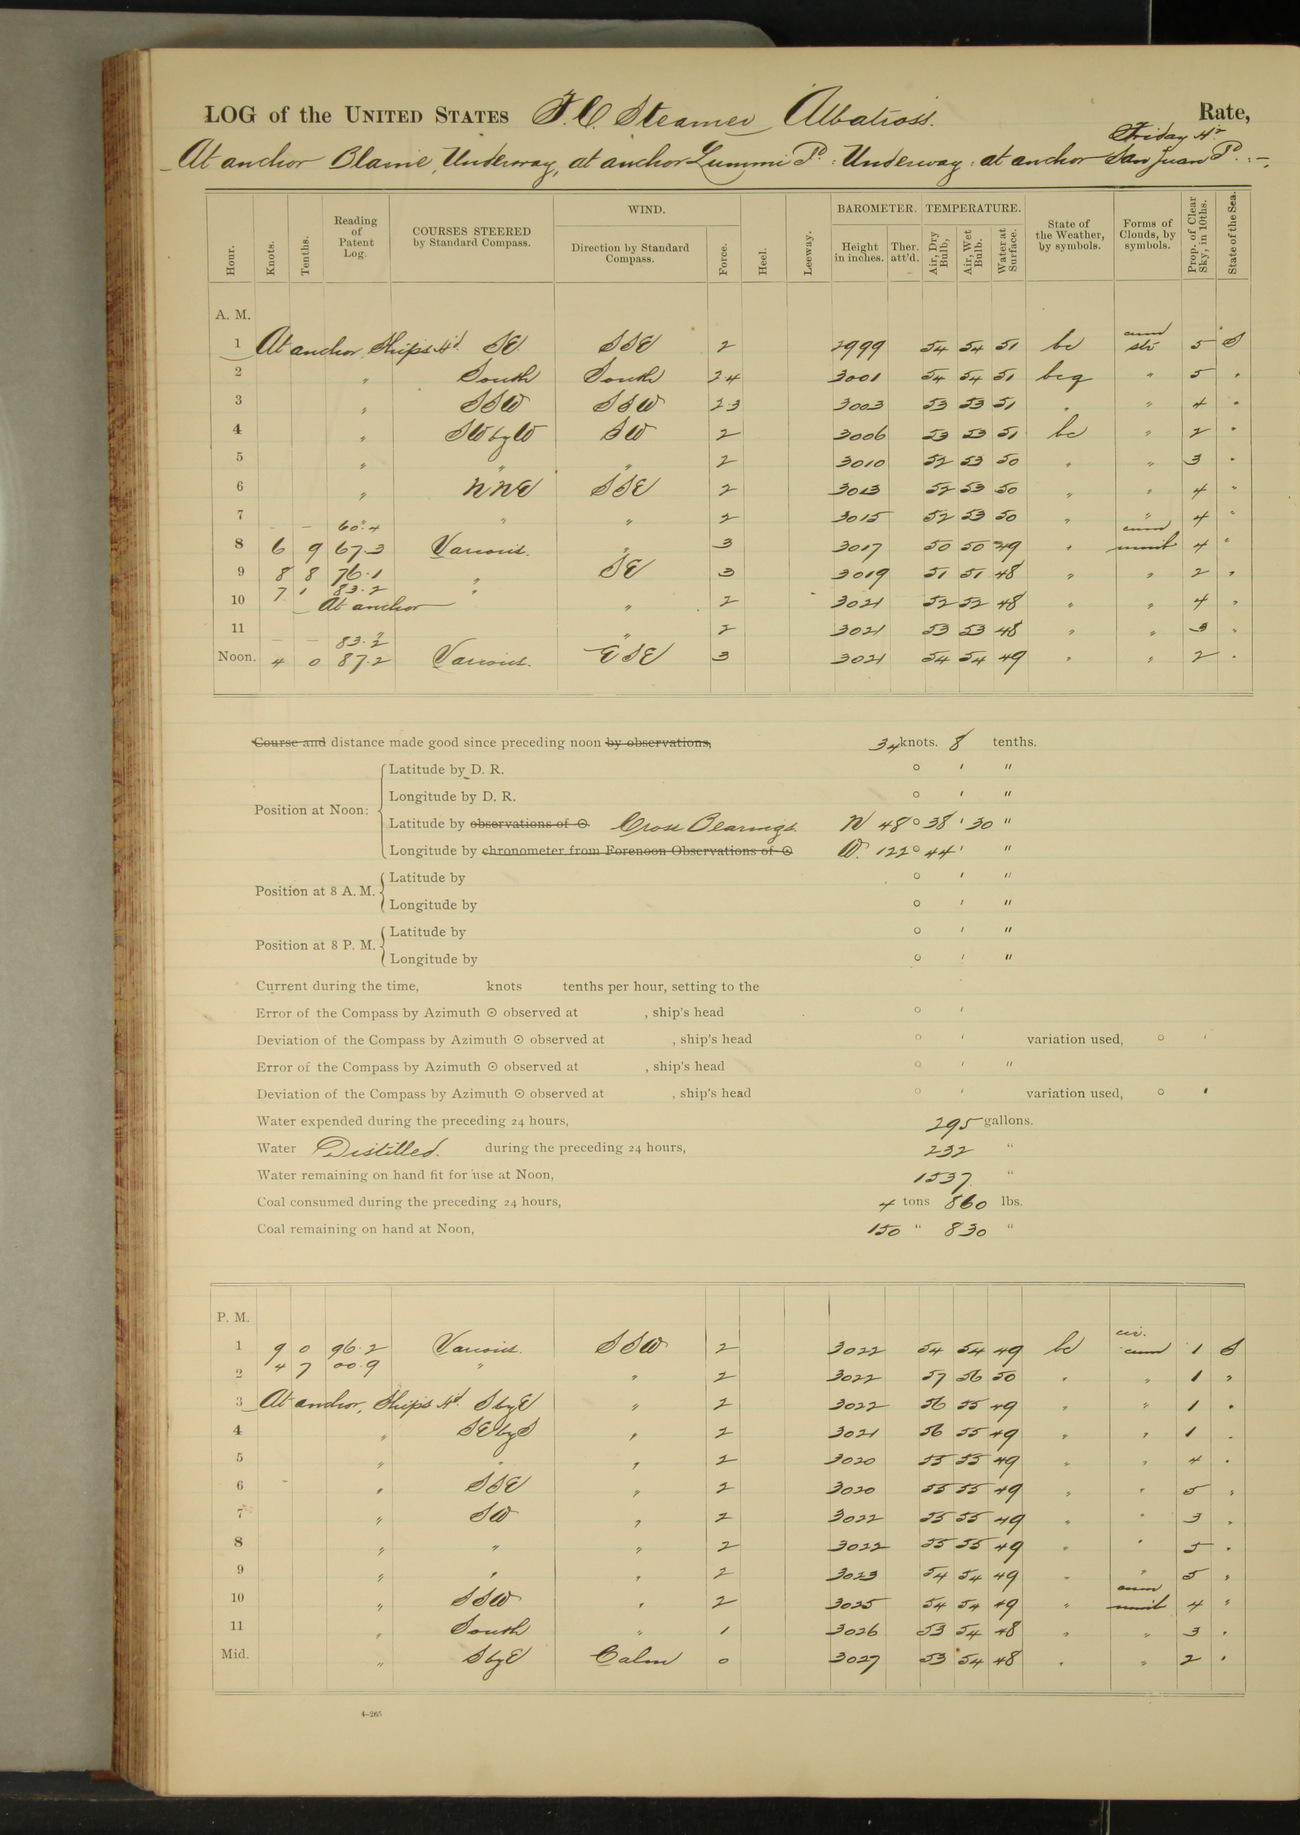 LOG of the UNITED STATES F.C. Steamer Albatross. Rate,
At anchor Blaine, Underway, at anchor Lummi Pd: Underway: at anchor Friday Hr San Juan Pd :—.
Hour. Knots. Tenths. Reading of Patent Log. COURSES STEERED by Standard Compass. WIND. Direction by Standard Compass. Force. Heel. Leeway. BAROMETER. Height in inches. Ther. att'd. TEMPERATURE. Air, Dry Bulb, Air, Wet Bulb. Water at Surface. State of the Weather, by symbols. Forms of Clouds, by symbols. Prop. of Clear Sky, in 10ths. State of the Sea.
A. M.
1 At anchor, Ships Hd. SE. SSE 2 2999 54 54 51 bc cum str 5 S
2 " South South 2 4 3001 54 54 51 bcq " 5 "
3 " SSW SSW 2 3 3003 53 53 51 " " 4 "
4 " SW by W SW 2 3006 53 53 51 bc " 2 "
5 " " " 2 3010 52 53 50 " " 3 "
6 " NNE SSE 2 3013 52 53 50 " " 4 "
7 – – 60.4 " " 2 3015 52 53 50 " " 4 "
8 6 9 67.3 Various. " 3 3017 50 50 49 " cum nimb 4 "
9 8 8 76.1 " SE 3 3019 51 51 48 " " 2 "
7 1 83.2 "
10 At anchor " 2 3021 52 52 48 " " 4 "
11 – – 83.2 " 2 3021 53 53 48 " " 3 "
Noon. 4 0 87.2 Various. ESE 3 3021 54 54 49 " " 2 "
Course and distance made good since preceding noon by observations, 34 knots. 8 tenths.
Position at Noon:
Latitude by D. R. ° ′ ″
Longitude by D. R. ° ′ ″
Latitude by observations of ☉ Cross Bearings. N 48° 38′ 30″
Longitude by chronometer from Forenoon Observations of ☉ W. 122° 44′ ″
Position at 8 A. M.
Latitude by ° ′ ″
Longitude by ° ′ ″
Position at 8 P. M.
Latitude by ° ′ ″
Longitude by ° ′ ″
Current during the time, knots tenths per hour, setting to the
Error of the Compass by Azimuth ☉ observed at , ship's head ° ′
Deviation of the Compass by Azimuth ☉ observed at , ship's head ° ′ variation used, ° ′
Error of the Compass by Azimuth ☉ observed at , ship's head ° ′ ″
Deviation of the Compass by Azimuth ☉ observed at , ship's head ° ′ variation used, ° ′
Water expended during the preceding 24 hours, 295 gallons.
Water Distilled. during the preceding 24 hours, 232 "
Water remaining on hand fit for use at Noon, 1537. "
Coal consumed during the preceding 24 hours, 4 tons 860 lbs.
Coal remaining on hand at Noon, 150 " 830 "
P. M.
1 9 0 96.2 Various. SSW 2 3022 54 54 49 bc cir. cum 1 S
2 4 7 00.9 " " 2 3022 57 56 50 " " 1 "
3 At anchor, Ships Hd. S by E " 2 3022 56 55 49 " " 1 "
4 " SE by S " 2 3021 56 55 49 " " 1 "
5 " " " 2 3020 55 55 49 " " 4 "
6 " SSE " 2 3020 55 55 49 " " 5 "
7 " SW " 2 3022 55 55 49 " " 3 "
8 " " " 2 3022 55 55 49 " " 5 "
9 " " " 2 3023 54 54 49 " " 5 "
10 " SSW " 2 3025 54 54 49 " cum nimb 4 "
11 " South " 1 3026 53 54 48 " " 3 "
Mid. " S by E Calm 0 3027 53 54 48 " " 2 "
4–265